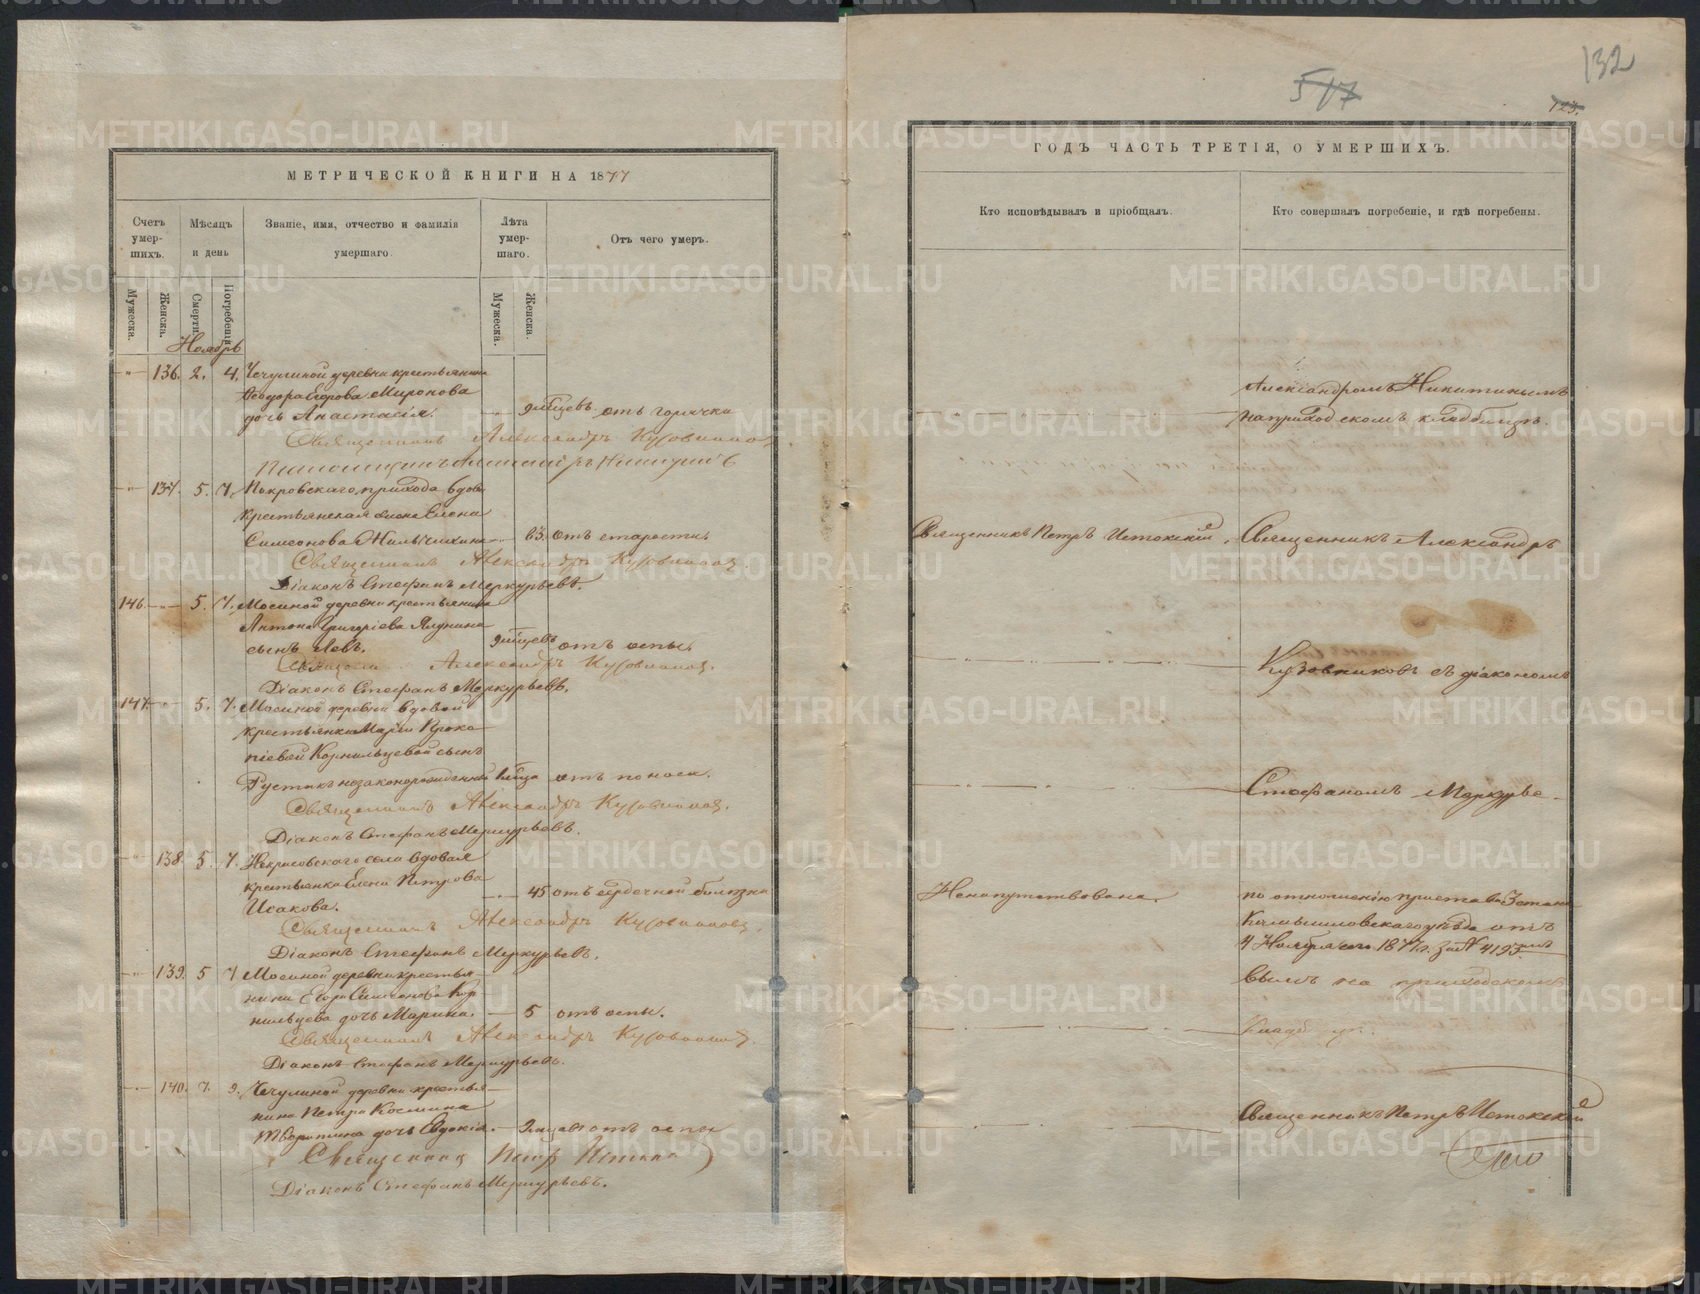 МЕТРИЧЕСКОЙ КНИГИ НА 1877
Счетъ умер-шихъ.
Мѣсяцъ и день
Званіе, имя, отчество и фамилія умершаго.
Лѣта умер-шаго.
Отъ чего умеръ.
Мужеска.
Женска.
Смерти.
Погребенія.
Мужеска.
Женска.
Ноябрь
136. 2. 4. Чечулиной деревни крестьянина
Ѳеодора Егорова Миронова
дочь Анастасія. 9 мѣсцевъ отъ горячки
Священникъ Александръ Кузовниковъ
137. 5. 7. Покровскаго прихода вдова
крестьянская жена Елена
Симеонова 83. отъ старости.
Священникъ Александръ Кузовниковъ.
Діаконъ Стефанъ Меркурьевъ.
146. 5. 7. Мосиной деревни крестьянина
Антона Григоріева Ялунина
сынъ Левъ. 9 мѣсцевъ отъ оспы.
Священникъ Александръ Кузовниковъ.
Діаконъ Стефанъ Меркурьевъ.
147. 5. 7. Мосиной деревни вдовой
крестьянки Маріи Проко-
піевой Корнильцевой сынъ
Рустикъ незаконорожденный мѣсца отъ поноса.
Священникъ Александръ Кузовниковъ.
Діаконъ Стефанъ Меркурьевъ.
138. 5. 7. Некрасовскаго села вдовая
крестьянка Елена Петрова
Исакова. 45 отъ сердечной болѣзни
Священникъ Александръ Кузовниковъ.
Діаконъ Стефанъ Меркурьевъ.
139. 5 7 Мосиной деревни крестья-
нина Егора Симеонова Кор-
нильцева дочь Марина. 5 отъ оспы.
Священникъ Александръ Кузовниковъ.
Діаконъ Стефанъ Меркурьевъ.
140. 7. 9. Чечулиной деревни крестья-
нина Петра Космина
дочь Евдокія. 2 мѣсцевъ отъ оспы
Священникъ Петръ Истокскій
Діаконъ Стефанъ Меркурьевъ.
132
517
123.
ГОДЪ ЧАСТЬ ТРЕТІЯ, О УМЕРШИХЪ.
Кто исповѣдывалъ и пріобщалъ.
Кто совершалъ погребеніе, и гдѣ погребены.
Александромъ Никитинымъ
на приходскомъ кладбищѣ.
Священникъ Петръ Истокскій. Священникъ Александръ
Кузовниковъ съ діакономъ
Стефаномъ Меркурье-
Ненапутствована. по отношенію пристава 3 стана
Камышловскаго уѣзда отъ
4 Ноября сего 1877 г. за № 4193
вымъ на приходскомъ
кладбищѣ.
Священникъ Петръ Истокскій
METRIKI.GASO-URAL.RU